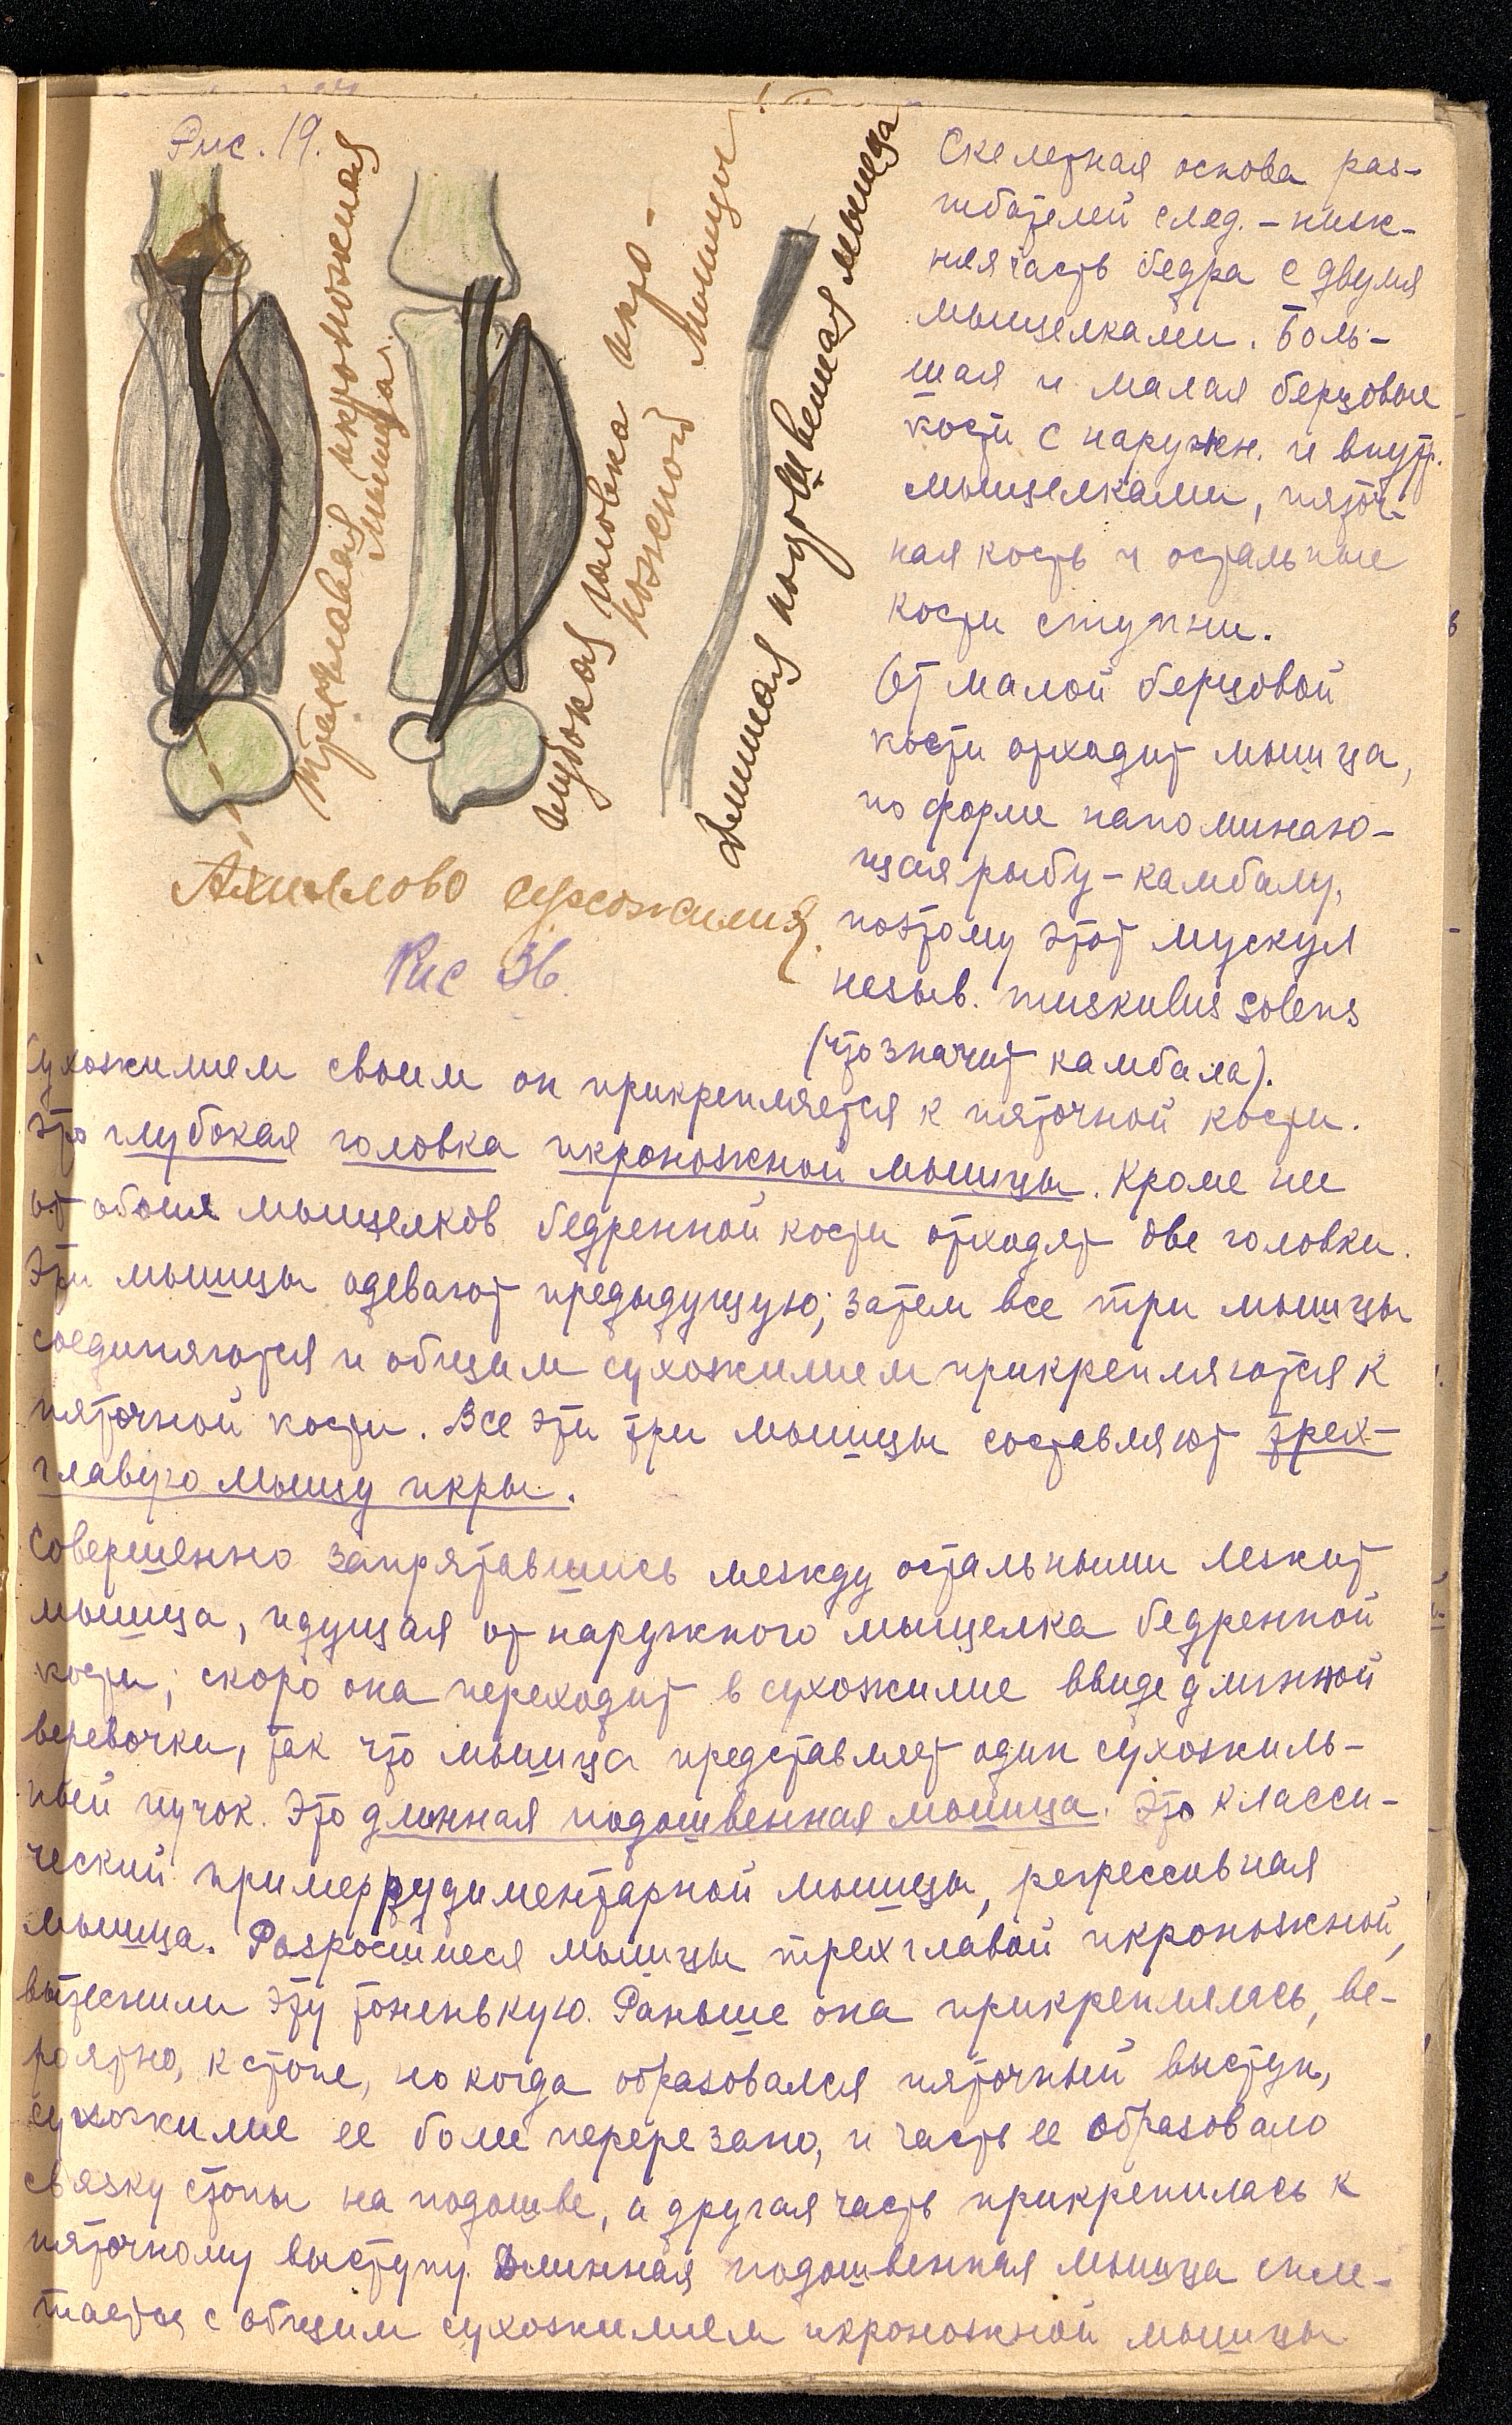 Рис. 19.
Трехглавая икроножная
мышца.
глубокая головка икро-
ножной мышцы
Длинная подошвенная мышца
Ахиллово сухожилия.
Рис 36.
Скелетная основа раз-
гибателей след. - ниж-
няя часть бедра с двумя
мыщелками. Боль-
шая и малая берцовые
кости с наружн. и внут.
мыщелками, пяточ-
ная кость и остальные
кости ступни.
От малой берцовой
кости отходит мышца,
по форме напоминаю-
щая рыбу - камбалу,
поэтому этот мускул
незыв. muskulus solens
(что значит камбала).
Сухожилием своим он прикрепляется к пяточной кости.
Это глубокая головка икроножной мышцы. Кроме нее
от обоих мыщелков бедренной кости отходят две головки.
Эти мышцы одевают предыдущую; затем все три мышцы
соединяются и общим сухожилием прикрепляются к
пяточной кости. Все эти три мышцы составляют трех-
главую мышцу икры.
Совершенно запрятавшись между остальными лежит
мышца, идущая от наружного мыщелка бедренной
кости; скоро она переходит в сухожилие ввиде длинной
веревочки, так что мышца представляет один сухожиль-
ный пучок. Это длинная подошвенная мышца. Это класси-
ческий пример рудиментарной мышцы, регрессивная
мышца. Разросшиеся мышцы трехглавой икроножной,
вытеснили эту тоненькую. Раньше она прикреплялась, ве-
роятно, к стопе, но когда образовался пяточный выступ,
сухожилие ее было перерезано, и часть ее образовало
связку стопы на подошве, а другая часть прикрепилась к
пяточному выступу. Длинная подошвенная мышца спле-
тается с общим сухожилием икроножной мышцы